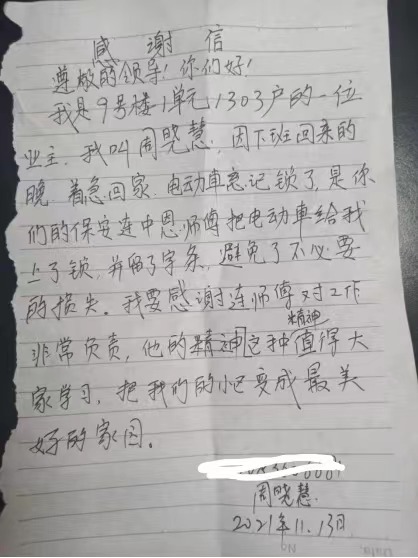 感谢信
尊敬的领导！你们好！
我是9号楼1单元1303户的一位
业主，我叫周晓慧，因下班回来的
晚，着急回家，电动车忘记锁了，是你
们的保安连中恩师傅把电动车给我
上了锁，并留了字条，避免了不必要
的损失。我要感谢连师傅对工作
非常负责，他的精神这种精神值得大
家学习，把我们的小区变成最美
好的家园。
周晓慧
2021年11.13日